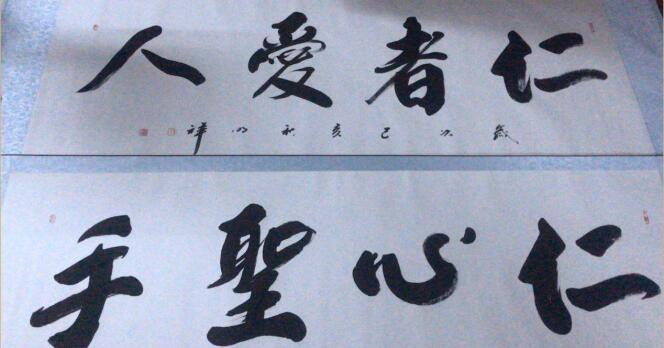 仁者愛人
歲次己亥秋明祥
仁心聖手